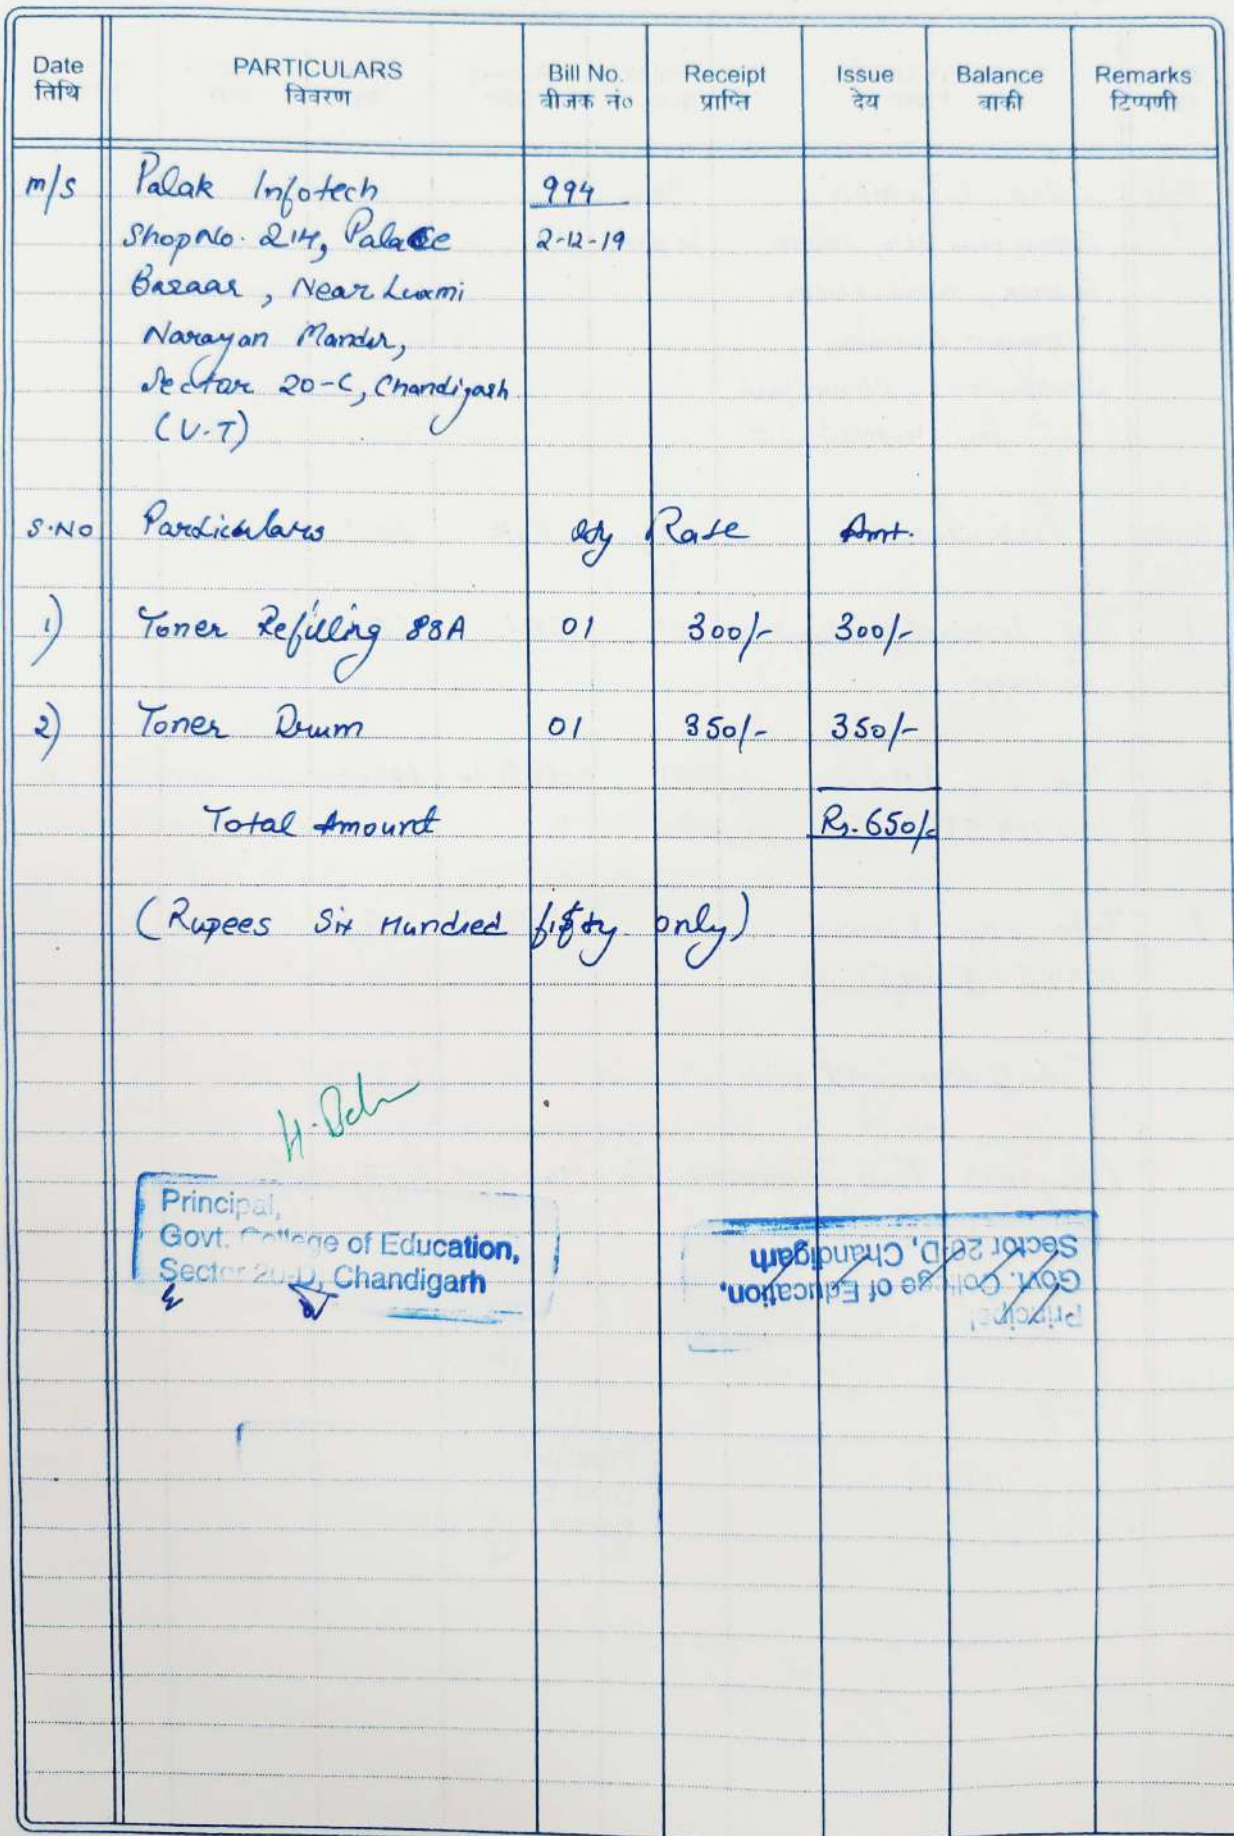 Date PARTICULARS Bill No. Receipt Issue Balance Remarks
तिथि विवरण बीजक नं० प्राप्ति देय बाकी टिप्पणी
m/s Palak Infotech 994
Shop No. 214, Palace 2-12-19
Bazaar, Near Luxmi
Narayan Mandir,
Sector 20-C, Chandigarh
(U.T)
S.No Particulars Qty Rate Amt.
1) Toner Refilling 88A 01 300/- 300/-
2) Toner Drum 01 350/- 350/-
Total Amount Rs. 650/-
(Rupees Six Hundred fifty only)
Principal,
Govt. College of Education,
Sector 20-D, Chandigarh
Principal
Govt. College of Education,
Sector 20-D, Chandigarh